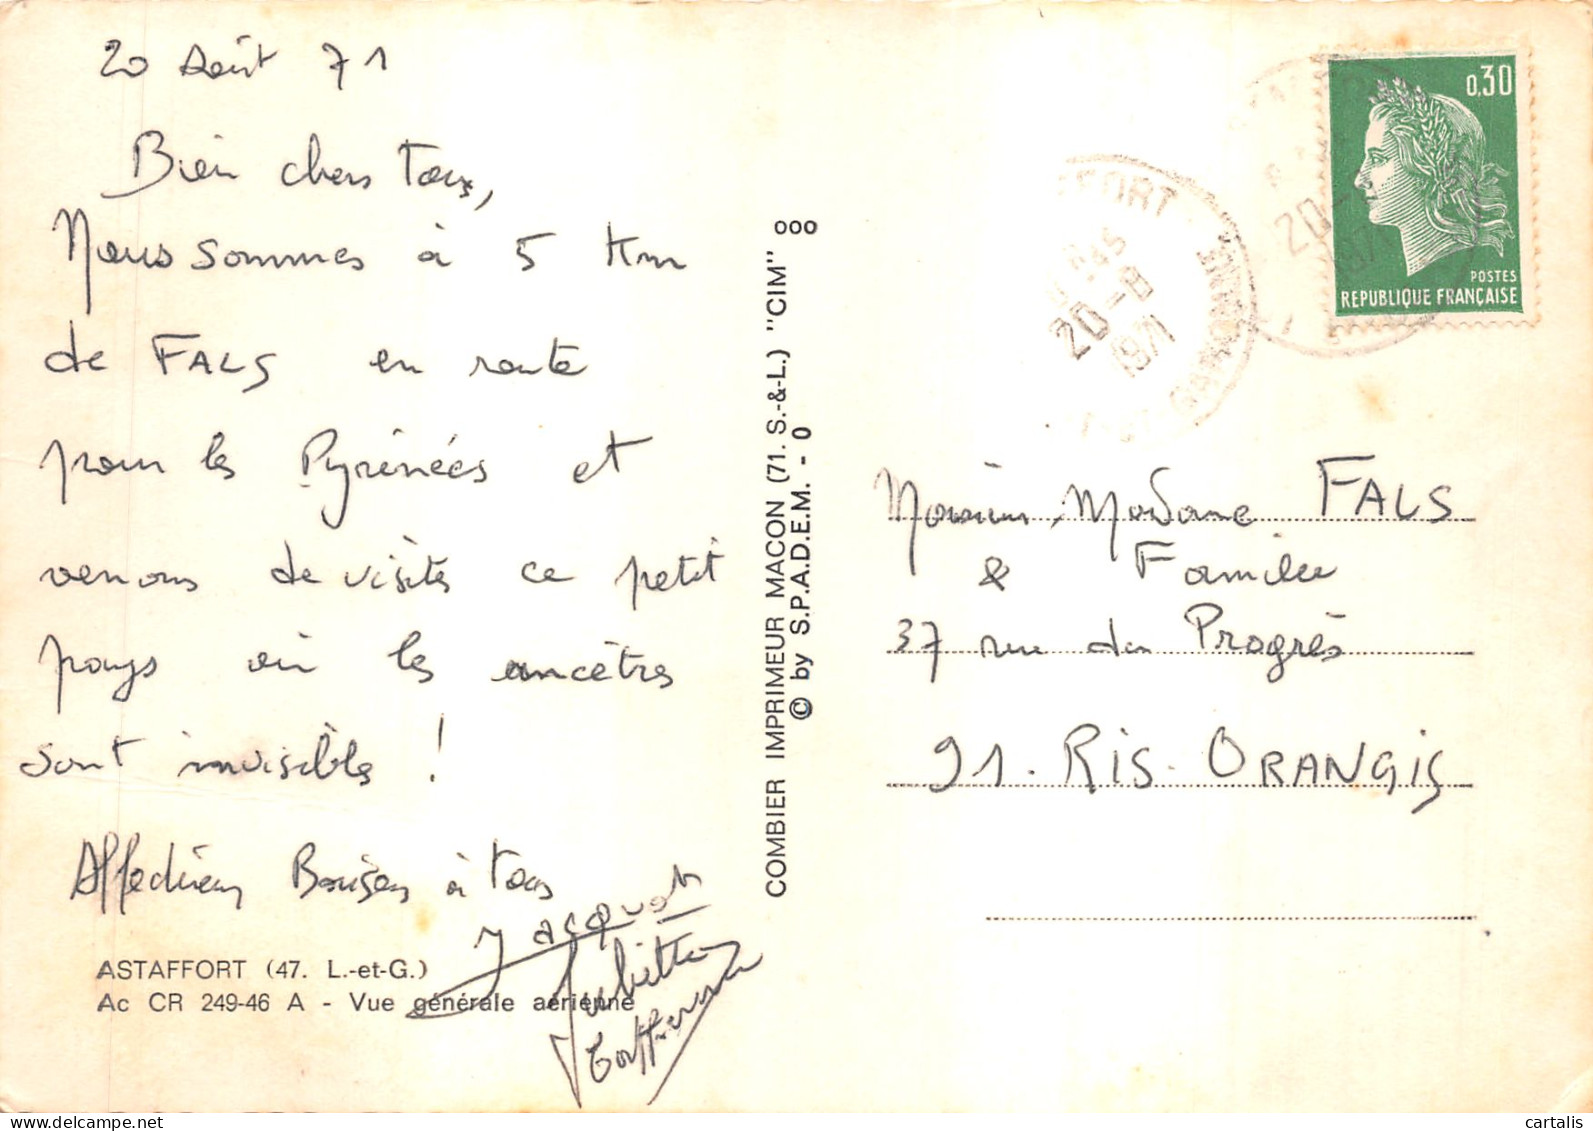 20 Août 71
Bien chers Tous,
Nous sommes à 5 Km
de FALS en route
pour les Pyrénées et
venons de visiter ce petit
pays où les ancêtres
sont invisibles !
Affectueux Baisers à tous
Jacquot
Juliette
ASTAFFORT (47. L.-et-G.)
Ac CR 249-46 A - Vue générale aérienne
COMBIER IMPRIMEUR MACON (71. S.-&-L.) "CIM" ooo
© by S.P.A.D.E.M. - 0
0,30
POSTES
REPUBLIQUE FRANÇAISE
FFORT
20-8
1971
GARONNE
20-
197
Monsieur, Madame FALS
& Famille
37 rue du Progrès
91. RIS. ORANGIS
cartalis
www.delcampe.net